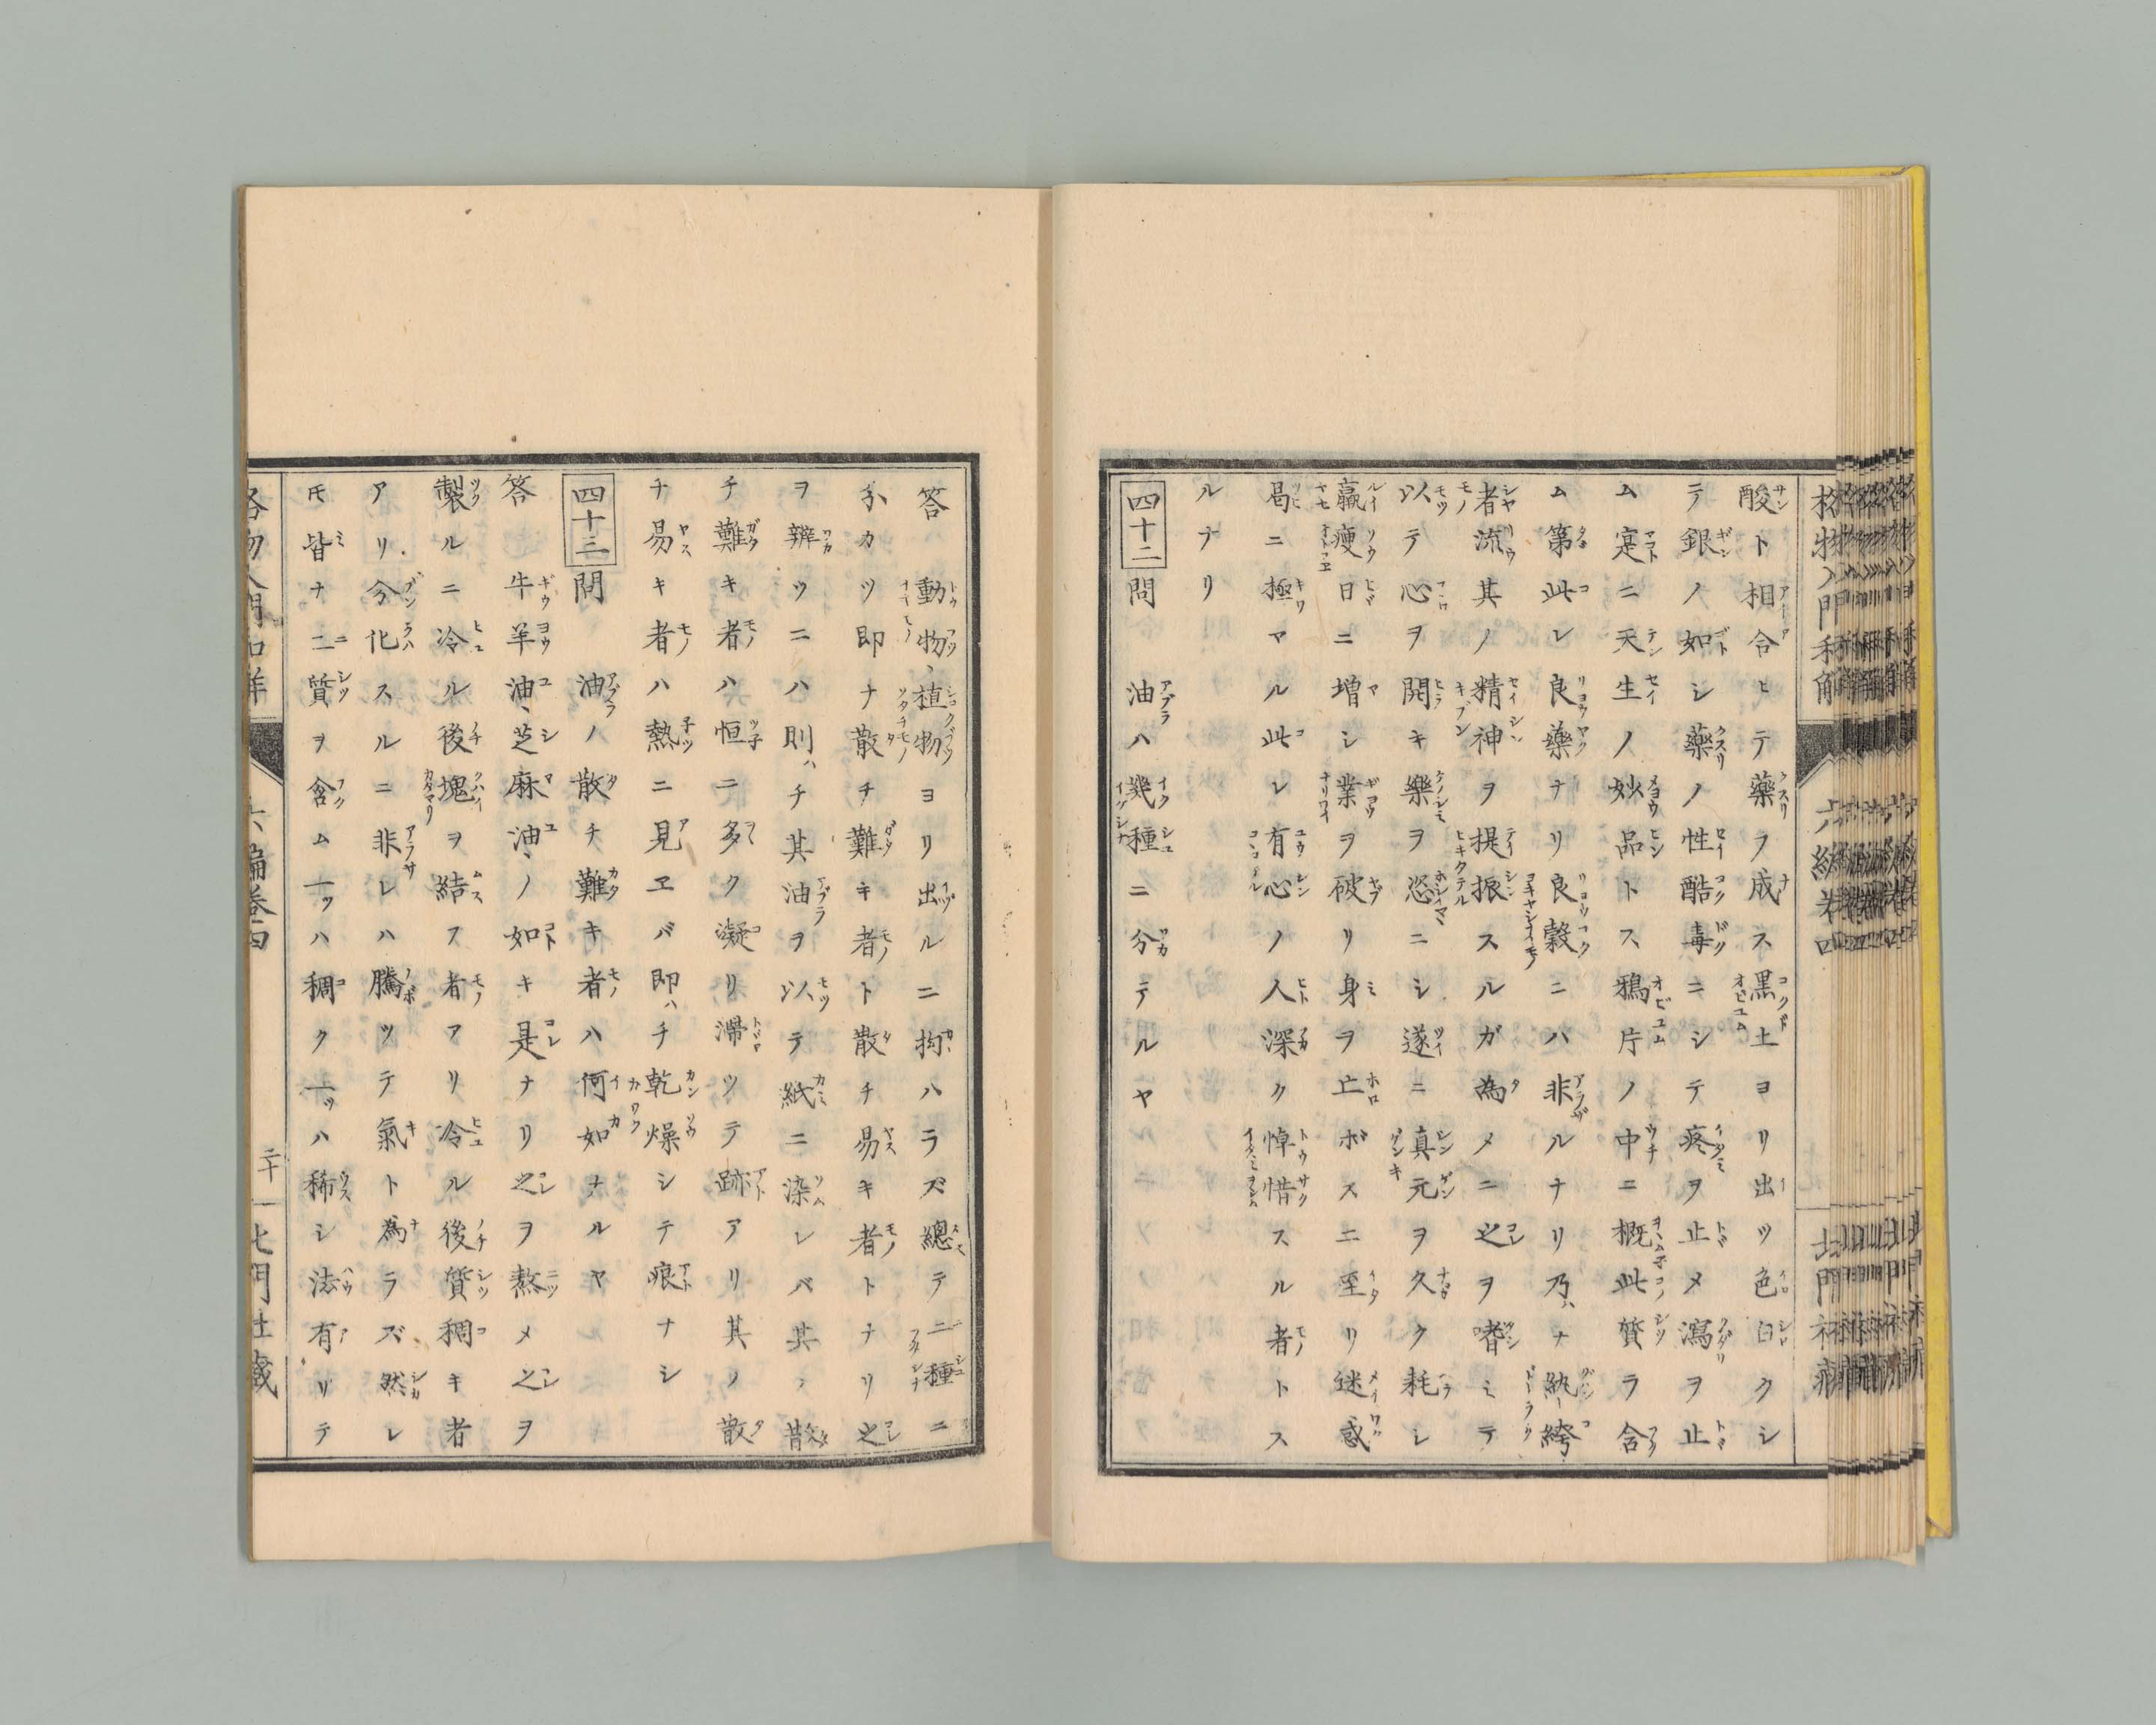 酸ト相合ヒテ藥ヲ成ス黒土ヨリ出ツ色白クシ
テ銀ノ如シ藥ノ性酷毒ニシテ疼ヲ止メ瀉ヲ止
ム寔ニ天生ノ妙品トス鴉片ノ中ニ概此質ラ含
ム第此レ良藥ナリ良穀ニハ非ルナリ乃ナ紈絝
者流其ノ精神ヲ提振スルガ為メニ之ヲ嗜ミテ
以テ心ヲ開キ樂ヲ恣ニシ遂ニ真元ヲ久ク耗シ
羸瘦日ニ増シ業ヲ破リ身ヲ亡ボスニ至リ迷惑
曷ニ極マル此レ有心ノ人深ク悼惜スル者トス
ルナリ
四十二 問 油ハ幾種ニ分テルヤ
答 動物、植物ヨリ出ルニ拘ハラズ總テ二種ニ
分カツ即ナ散チ難キ者ト散チ易キ者トナリ之
ヲ辨ツニハ則チ其油ヲ以テ紙ニ染レバ其ノ散
チ難キ者ハ恒ニ多ク凝リ滯ツテ跡アリ其ノ散
チ易キ者ハ熱ニ見ヱバ即チ乾燥シテ痕ナシ
四十三 問 油ノ散チ難キ者ハ何如ナルヤ
答 牛羊油、芝麻油、ノ如キ是ナリ之ヲ熬メ之ヲ
製ルニ冷ル後塊ヲ結フ者アリ冷ル後質稠キ者
アリ分化スルニ非レハ騰ツテ氣ト為ラズ然レ
圧皆ナ二質ヲ含ム一ッハ稠ク一ッハ稀シ法有リテ